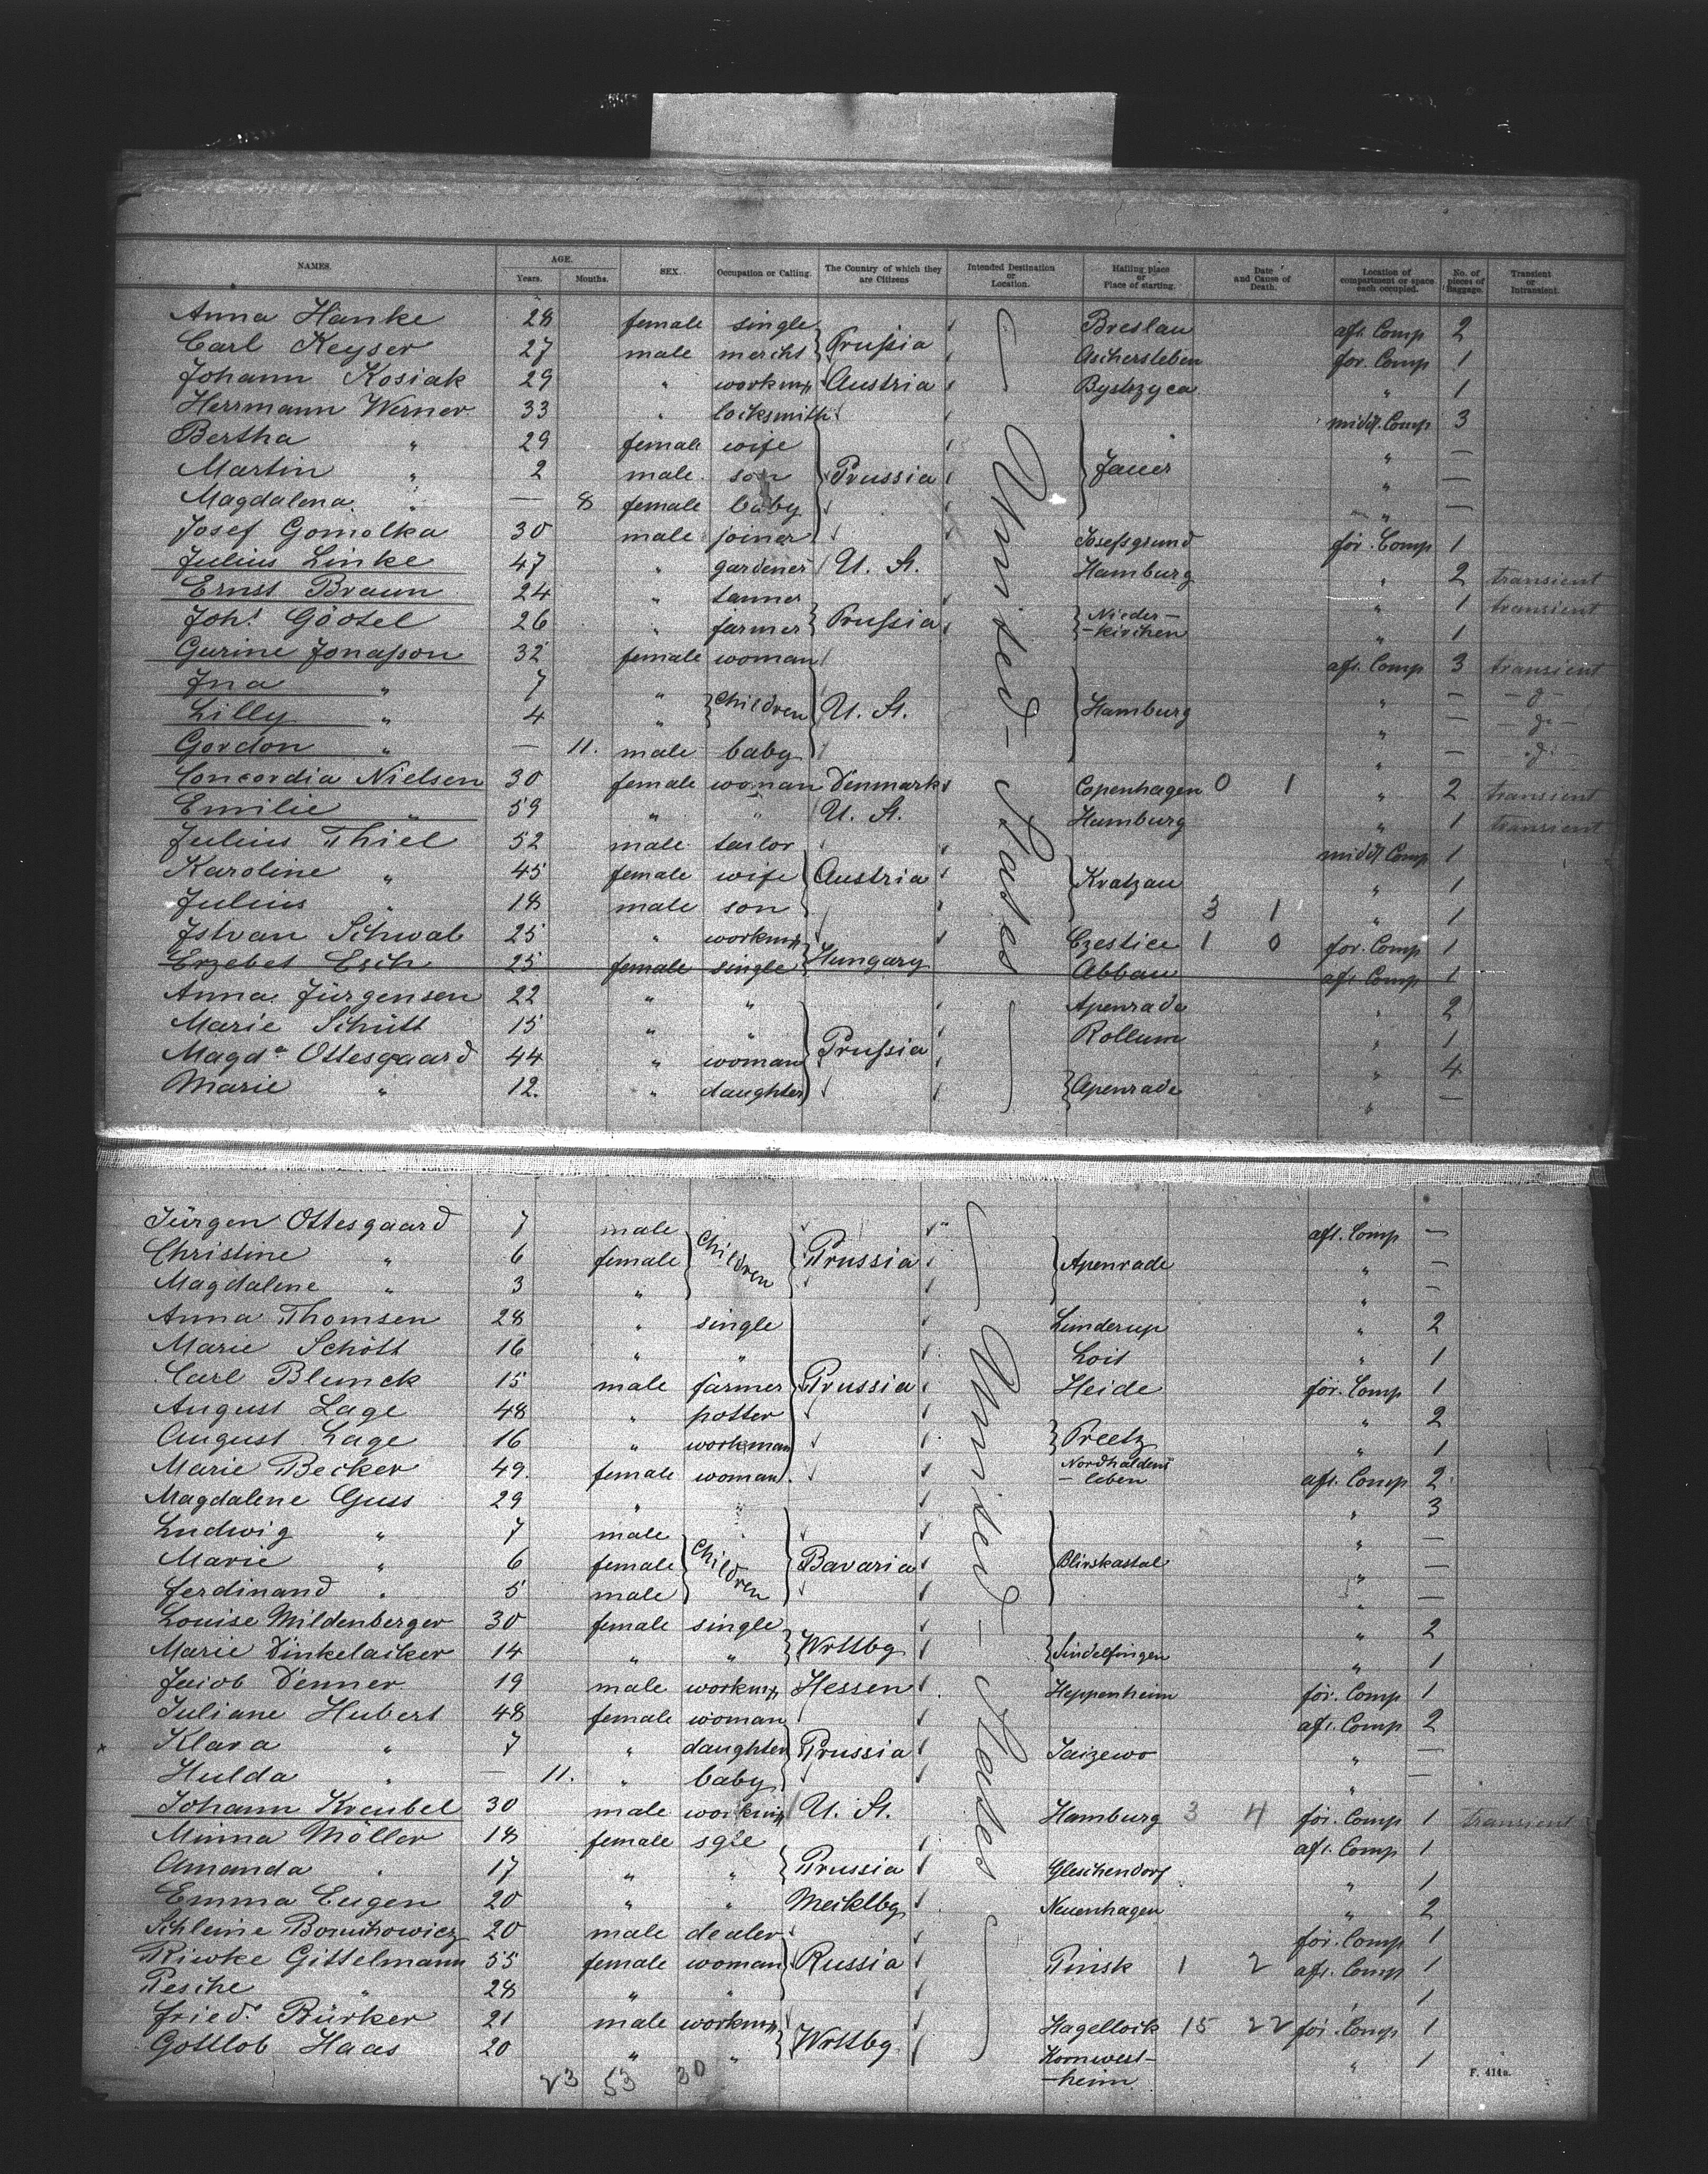 NAMES. AGE. Years. Months. SEX. Occupation or Calling. The Country of which they are Citizens Intended Destination or Location. Hailing place or Place of starting. Date and Cause of Death. Location of compartment or space each occupied. No. of pieces of Baggage. Transient or Intransient.
Anna Hanke 28 female single Prussia United States Breslau aft. Comp 2
Carl Keyser 27 male mercht Aschersleben for. Comp 1
Johann Kosiak 29 " workmn Austria Bystrzyca " 1
Herrmann Werner 33 " locksmith middl. Comp 3
Bertha " 29 female wife " —
Martin " 2 male son Prussia Jauer " —
Magdalena " — 8 female baby " —
Josef Gomolka 30 male joiner Josefsgrund for. Comp 1
Julius Linke 47 " gardener U. St. Hamburg " 2 transient
Ernst Braun 24 " tanner " 1 transient
Joh. Göotel 26 " farmer Prussia Nieder-kirchen " 1
Gurine Jonasson 32 female woman aft. Comp 3 transient
Ina " 7 " Children U. St. Hamburg " — — d° —
Lilly " 4 " " — — d° —
Gordon " — 11. male baby " — — d° —
Concordia Nielsen 30 female woman Denmark Copenhagen 0 1 " 2 transient
Emilie " 59 " " U. St. Hamburg " 1 transient
Julius Thiel 52 male tailor middl. Comp 1
Karoline " 45 female wife Austria Kratzau " 1
Julius " 18 male son 3 1 " 1
Istvan Schwab 25 " workmn Hungary Czestice 1 0 for. Comp 1
Erzebet Esch 25 female single Abbau aft. Comp 1
Anna Jürgensen 22 " " Apenrade " 2
Marie Schütt 15 " " Prussia Rollum " 1
Magda Ottesgaard 44 " woman " 4
Marie " 12. " daughter Apenrade " —
Jürgen Ottesgaard 7 male Children Prussia United States Apenrade aft. Comp —
Christine " 6 female " —
Magdalene " 3 " " —
Anna Thomsen 28 " single Linderup " 2
Marie Schött 16 " " Loit " 1
Carl Blunck 15 male farmer Prussia Heide for. Comp 1
August Lage 48 " potter Preetz " 2
August Lage 16 " workman " 1
Marie Becker 49. female woman Nordhaldens-leben aft. Comp 2
Magdalene Guss 29 " " " 3
Ludwig " 7 male Children " —
Marie " 6 female Bavaria Blieskastal " —
Ferdinand " 5 male " —
Louise Mildenberger 30 female single Wrttbg Sindelfingen " 2
Marie Dinkelacker 14 " " " 1
Jacob Denner 19 male workmn Hessen Heppenheim for. Comp 1
Juliane Hubert 48 female woman aft. Comp 2
Klara " 7 " daughter Prussia Saizewo " —
Hulda " — 11. " baby " —
Johann Kreubel 30 male workmn U. St. Hamburg 3 4 for. Comp 1 transient
Minna Möller 18 female sgle aft. Comp 1
Amanda " 17 " " Prussia Gleschendorf " 1
Emma Eugen 20 " " Mecklbg Neuenhagen " 2
Schleine 20 male dealer for. Comp 1
Riwke Gittelmann 55 female woman Russia Pinsk 1 2 aft. Comp 1
Pesche " 28 " " " 1
Fried. Bürker 21 male workmn Wrttbg Hagelloch 15 22 for. Comp 1
Gottlob Haas 20 " " Kornwest-heim " 1
23 53 30
F. 414a.